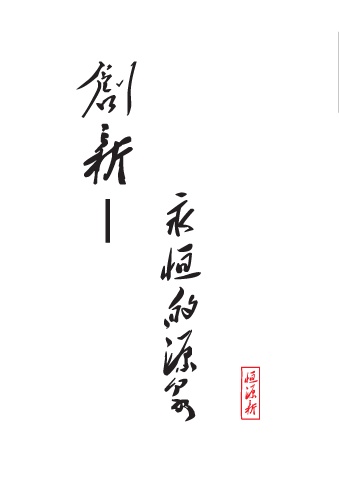 創新—
永恒的源泉
恒源新